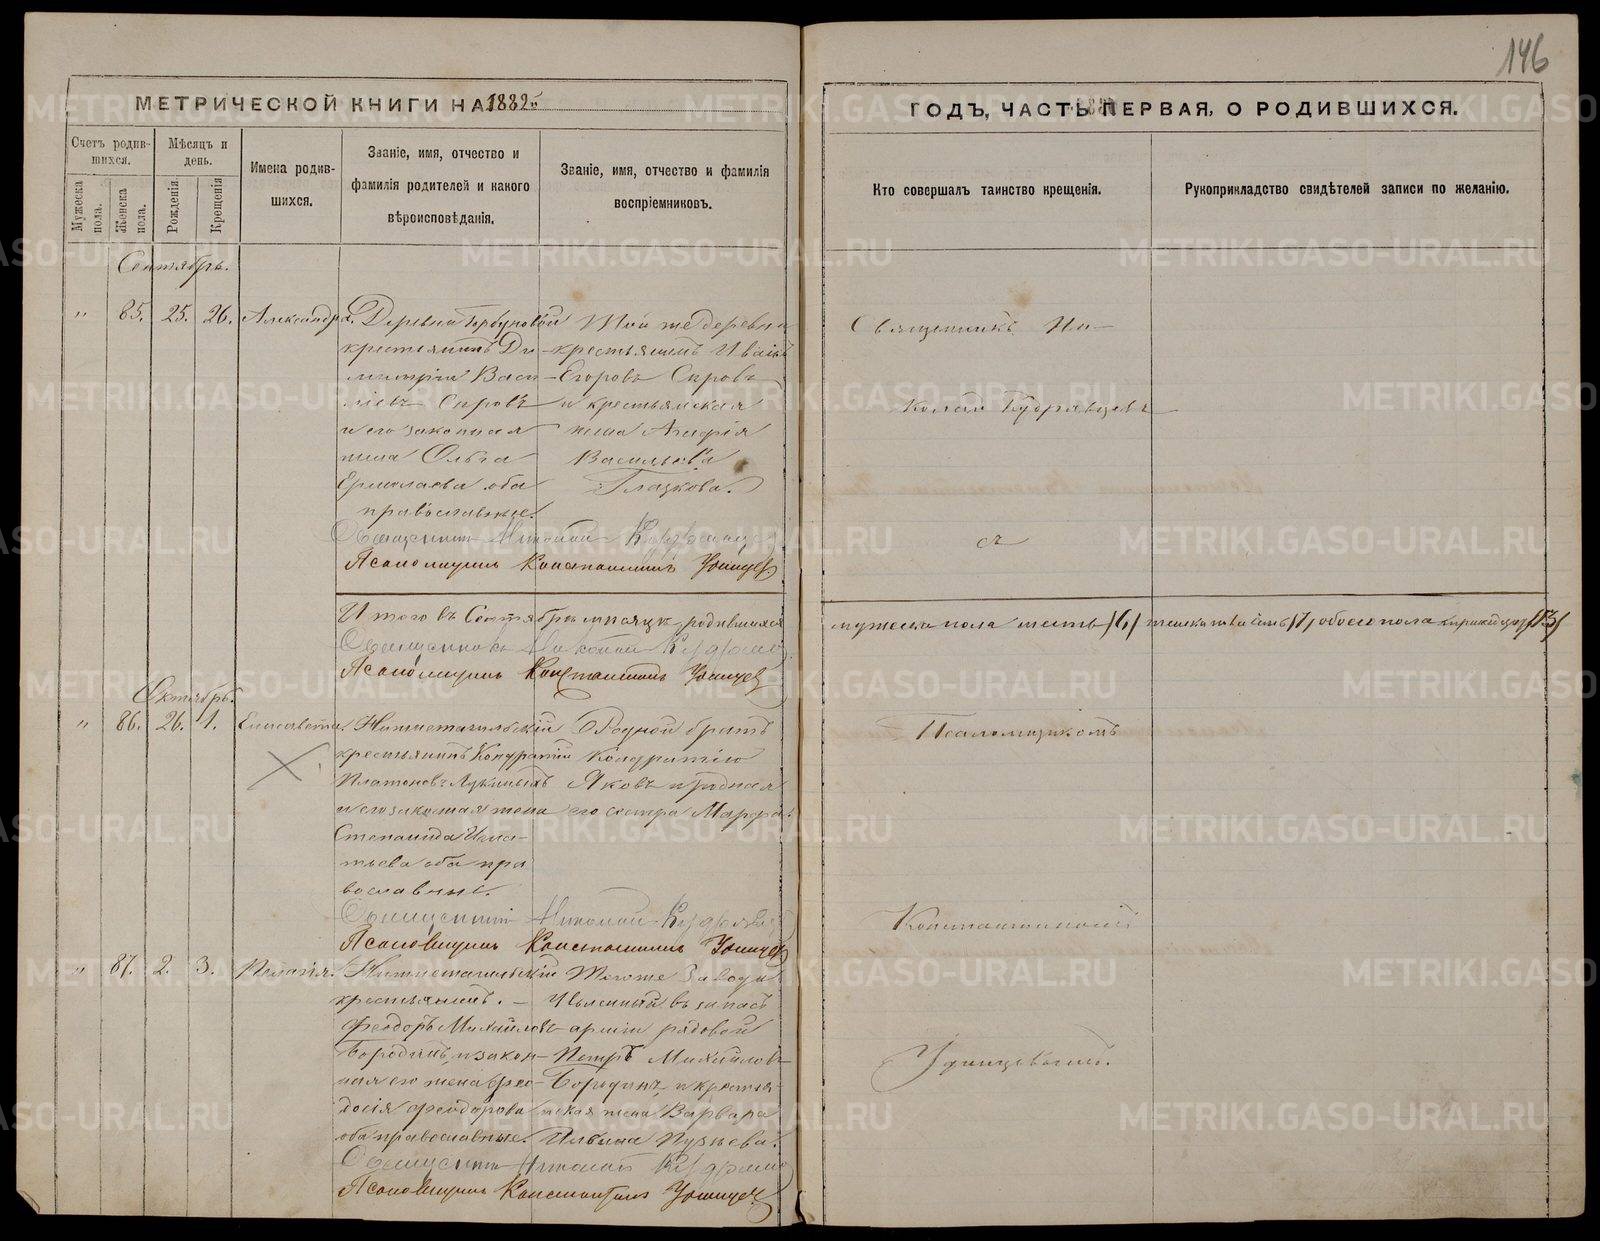 146
МЕТРИЧЕСКОЙ КНИГИ НА 1882й
ГОДЪ, ЧАСТЬ ПЕРВАЯ, О РОДИВШИХСЯ.
Счетъ родив-
шихся.
Мужеска пола.
Женска пола.
Мѣсяцъ и
день.
Рожденія.
Крещенія.
Имена родив-
шихся.
Званіе, имя, отчество и
фамилія родителей и какого
вѣроисповѣданія.
Званіе, имя, отчество и фамилія
воспріемниковъ.
Кто совершалъ таинство крещенія.
Рукоприкладство свидѣтелей записи по желанію.
Сентябрь.
" 85. 25. 26. Александра.
Деревни Горбуновой
крестьянинъ Ди-
митрій Васи-
ліевъ Серовъ
и его законная
жена Ольга
Ермолаева оба
православные.
Той же деревни
крестьянинъ Иванъ
Егоровъ Серовъ
и крестьянская
жена Агафія
Васильева
Глазкова.
Священникъ Ни-
колай Кудрявцевъ
съ
Священникъ Николай Кудрявцевъ
Псаломщикъ Константинъ Удинцевъ
Итого въ Сентябрѣ мѣсяцѣ родившихся мужеска пола шесть /6/ женска семь /7/ обоего пола тринадцать /13/
Священникъ Николай Кудрявцевъ
Псаломщикъ Константинъ Удинцевъ
Октябрь.
" 86. 26. 1. Елисавета.
Нижнетагильскій
крестьянинъ Кондратій
Платоновъ
и его законная жена
Степанида Игна-
тьева оба пра
вославные.
Родной братъ
Кондратію
Яковъ и родная
его сестра Марфа.
Псаломщикомъ
Священникъ Николай Кудрявцевъ
Псаломщикъ Константинъ Удинцевъ
Константиномъ
" 87. 2. 3. Пелагія.
Нижнетагильскій
крестьянинъ.
Феодоръ Михайловъ
Бородинъ, и закон-
ная его жена Фео-
досія Феодорова
оба православные.
Тогоже завода
Уволенный въ запасъ
арміи рядовой
Петръ Михайловъ
Бородинъ, и крестья-
нская жена Варвара
Ильина
Удинцевымъ.
Священникъ Николай Кудрявцевъ
Псаломщикъ Константинъ Удинцевъ
METRIKI.GASO-URAL.RU